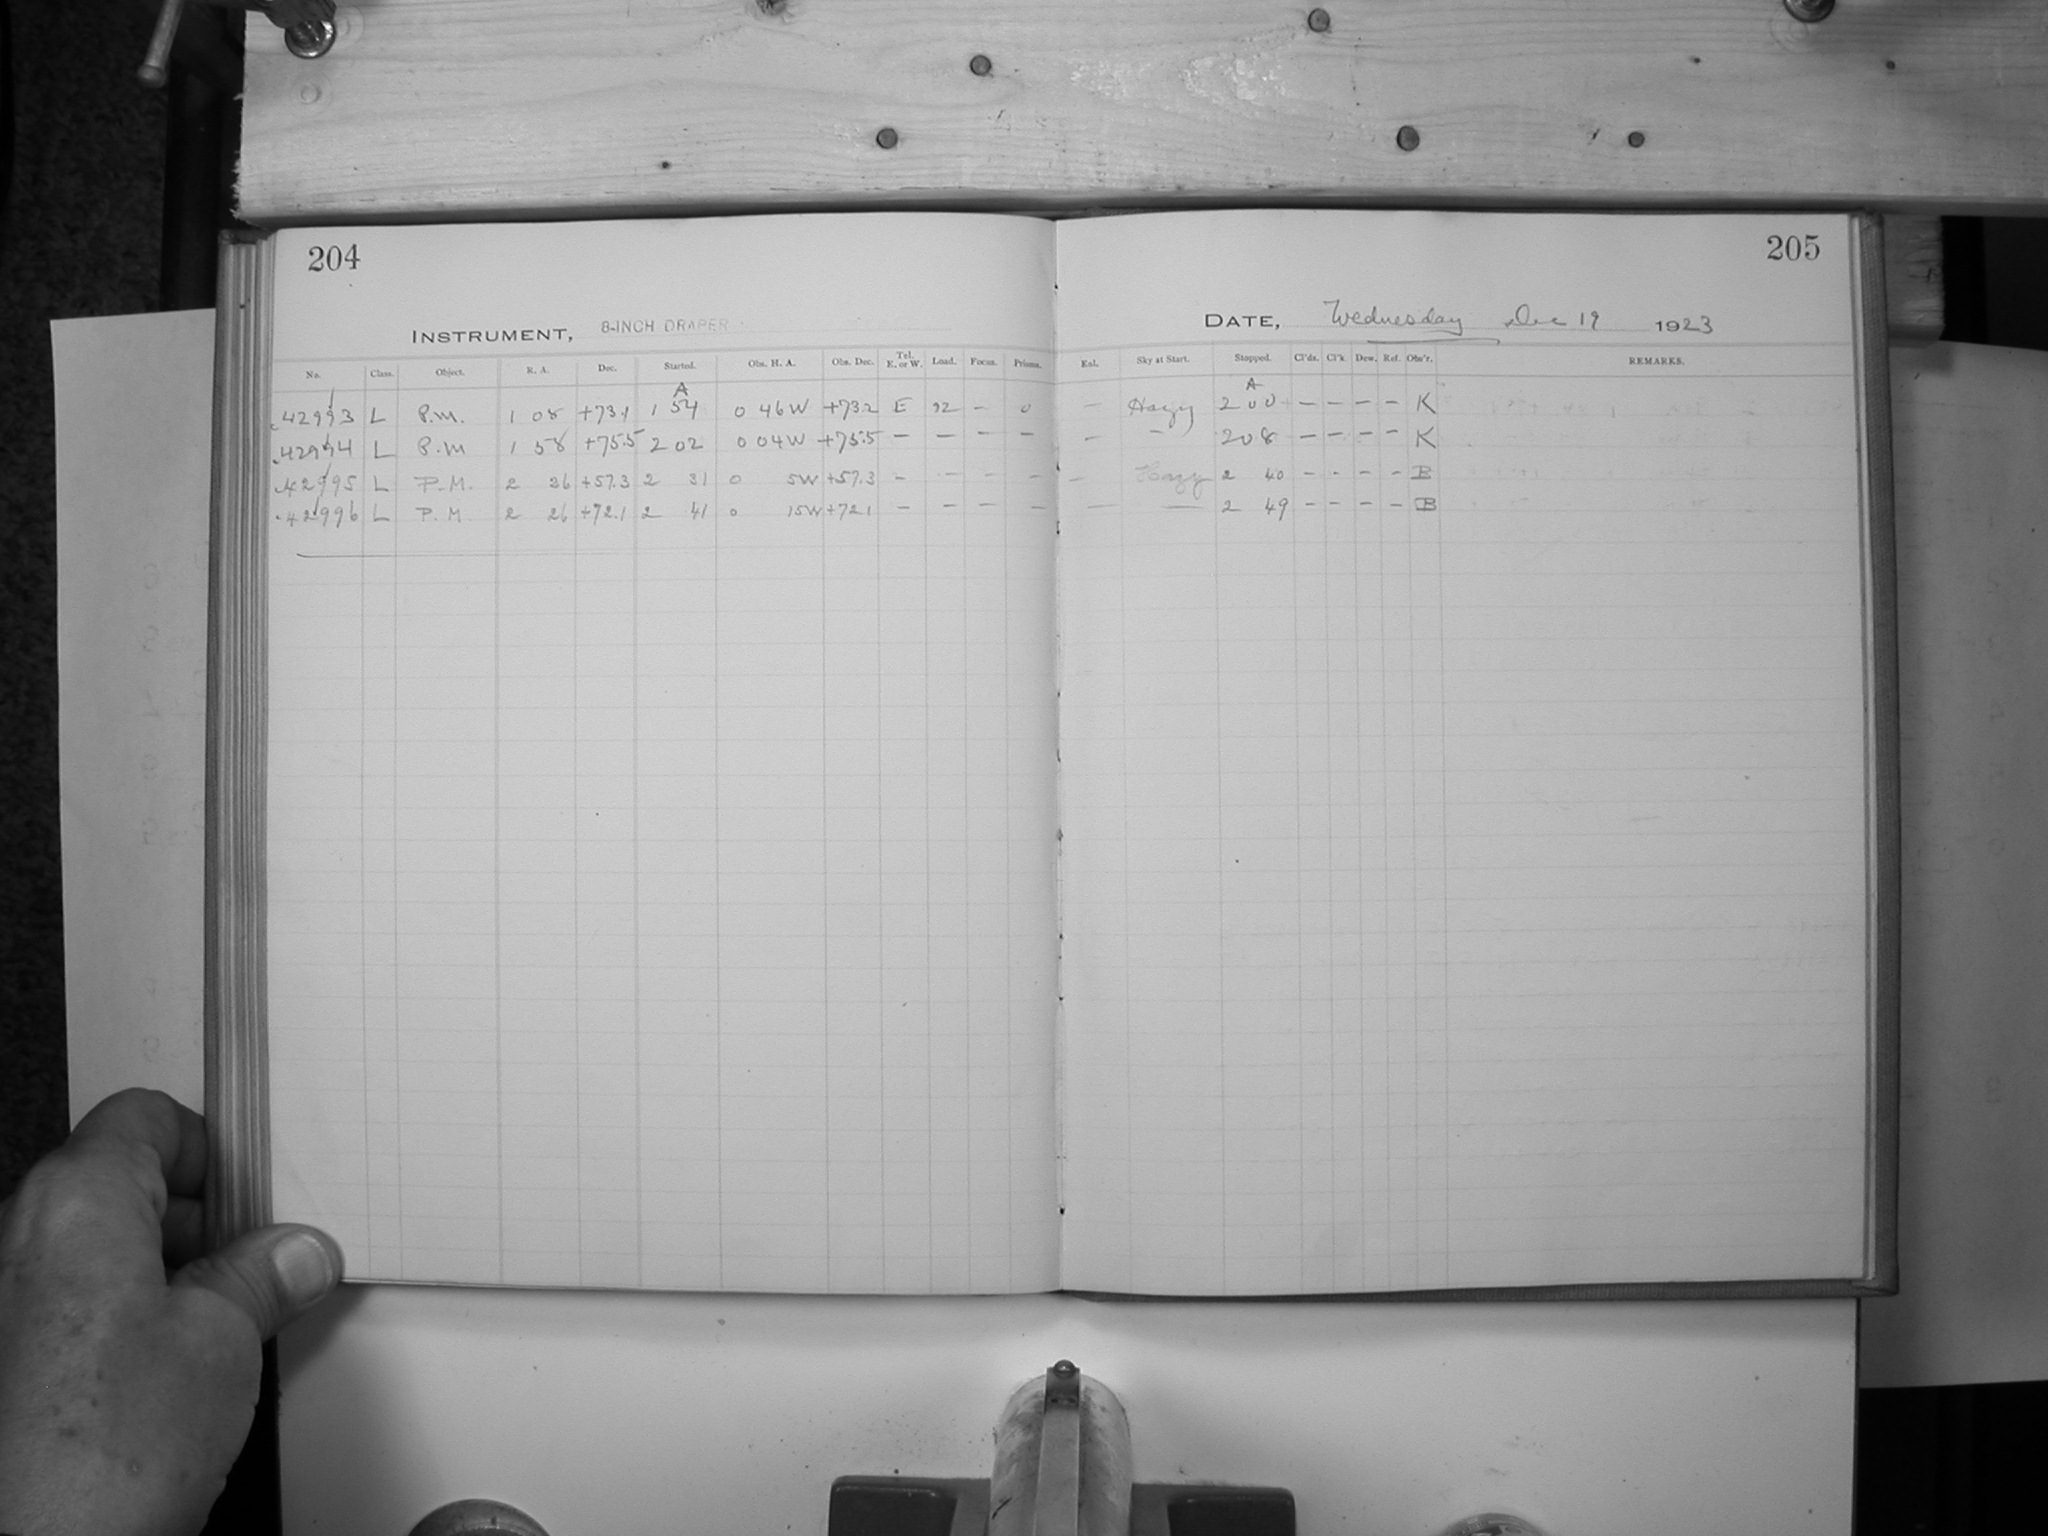 204
INSTRUMENT, 8-INCH DRAPER
No. Class. Object. R. A. Dec. Started. Obs. H. A. Obs. Dec. Tel. E. or W. Load. Focus. Prisms.
A
42993 L P.M. 1 08 +73.1 1 54 0 46 W +73.2 E 92 – 0
42994 L P.M 1 58 +75.5 2 02 0 04 W +75.5 – – – –
42995 L P.M. 2 26 +57.3 2 31 0 5W +57.3 – – – –
42996 L P.M 2 26 +72.1 2 41 0 15W +72.1 – – – –
205
DATE, Wednesday Dec 19 1923
Enl. Sky at Start. Stopped. Cl'ds. Cl'k Dew. Ref. Obs'r. REMARKS.
A
– Hazy 2 00 – – – – K
– – 2 08 – – – – K
– Hazy 2 40 – – – – B
– – 2 49 – – – – B